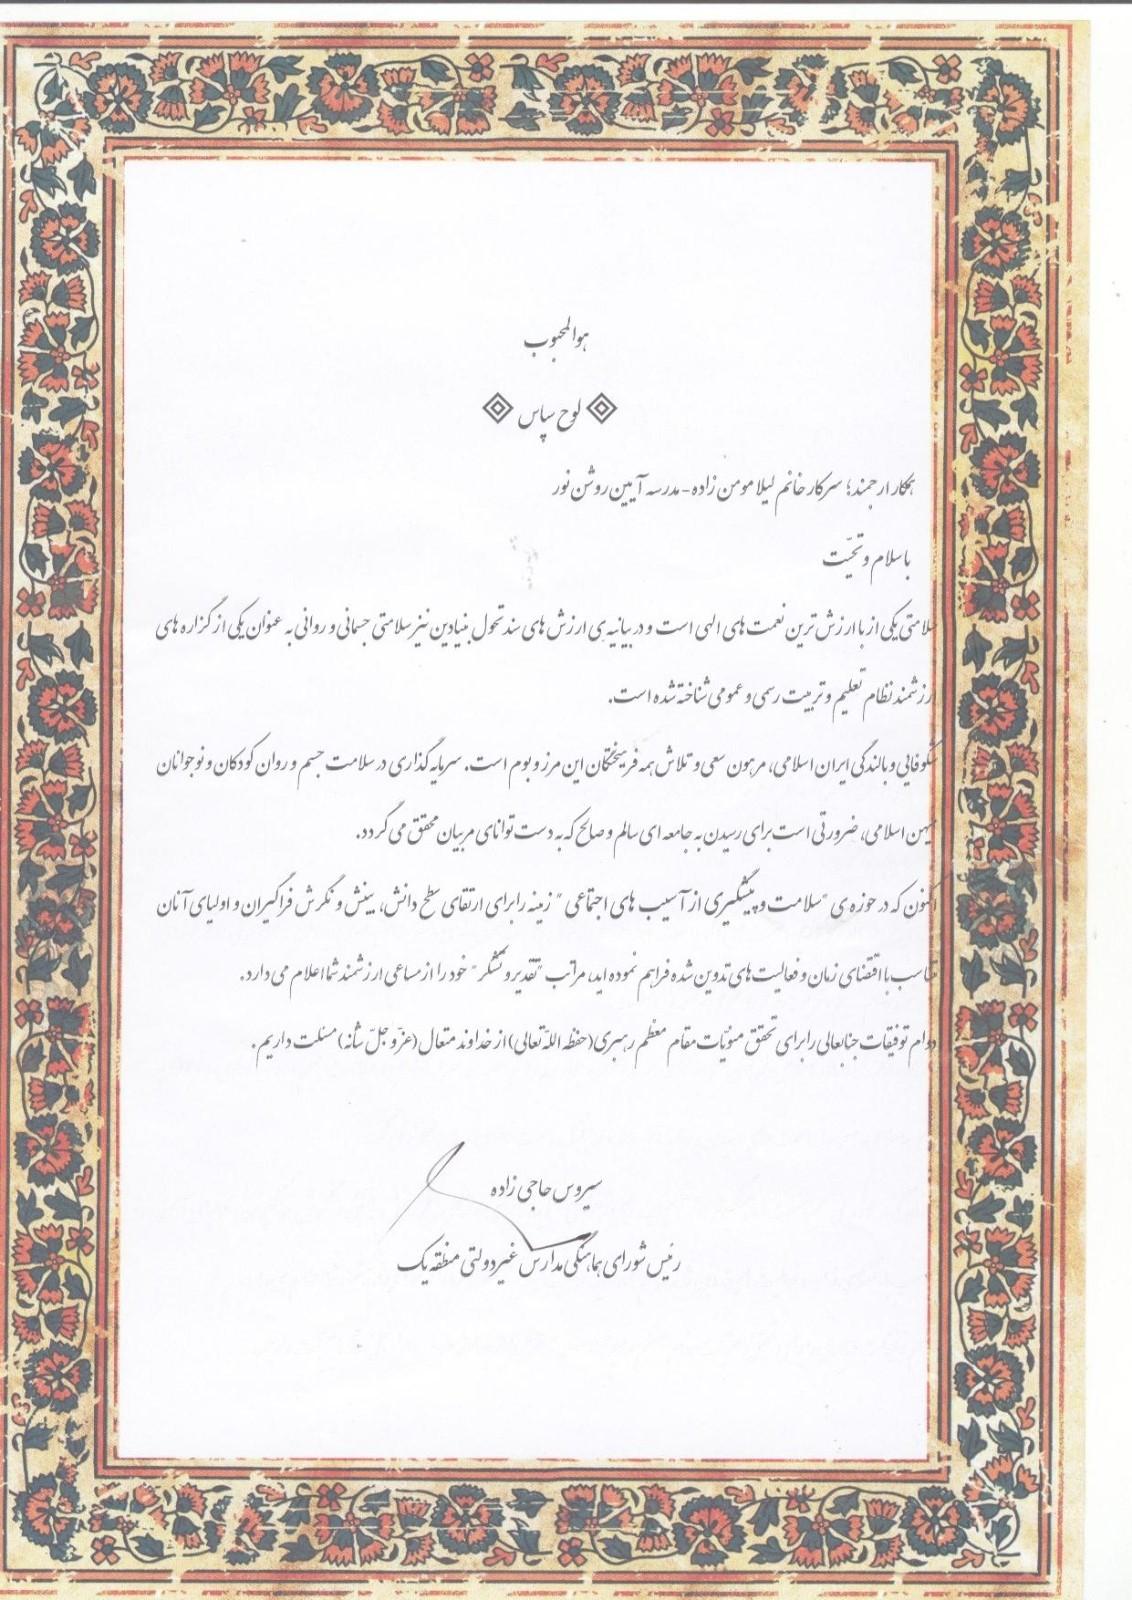 هوالمحبوب
لوح سپاس
همکار ارجمند؛ سرکار خانم لیلا مومن زاده - مدرسه آیین روشن نور
با سلام و تحیّت
سلامتی یکی از با ارزش ترین نعمت های الهی است و در بیانیه ی ارزش های سند تحول بنیادین نیز سلامتی جسمانی و روانی به عنوان یکی از گزاره های
ارزشمند نظام تعلیم و تربیت رسمی و عمومی شناخته شده است.
شکوفایی و بالندگی ایران اسلامی، مرهون سعی و تلاش همه فرهیختگان این مرز و بوم است. سرمایه گذاری در سلامت جسم و روان کودکان و نوجوانان
میهن اسلامی، ضرورتی است برای رسیدن به جامعه ای سالم و صالح که به دست توانای مربیان محقق می گردد.
اکنون که در حوزه ی "سلامت و پیشگیری از آسیب های اجتماعی" زمینه را برای ارتقای سطح دانش، بینش و نگرش فراگیران و اولیای آنان
متناسب با اقتضای زمان و فعالیت های تدوین شده فراهم نموده اید، مراتب "تقدیر و تشکر" خود را از مساعی ارزشمند شما اعلام می دارد.
دوام توفیقات جنابعالی را برای تحقق منویّات مقام معظّم رهبری (حفظه اللّه تعالی) از خداوند متعال (عزّ و جلّ شأنه) مسئلت داریم.
سیروس حاجی زاده
رئیس شورای هماهنگی مدارس غیردولتی منطقه یک